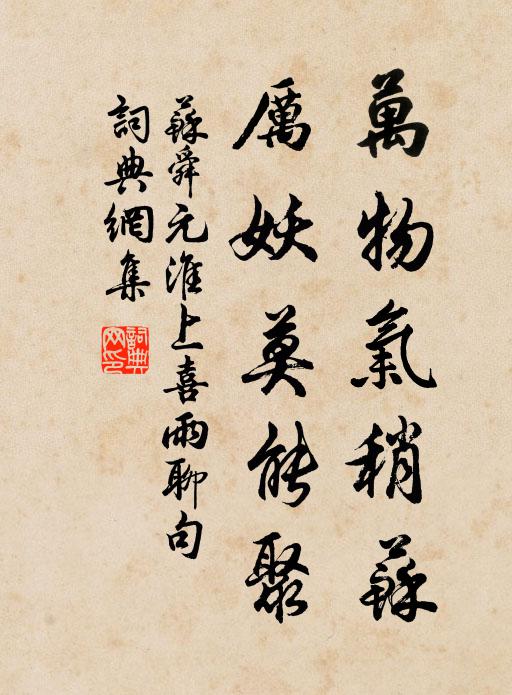 萬物氣稍蘇
厲妖莫能聚
蘇舜元淮上喜雨聊句
詞典網集
詞典网印